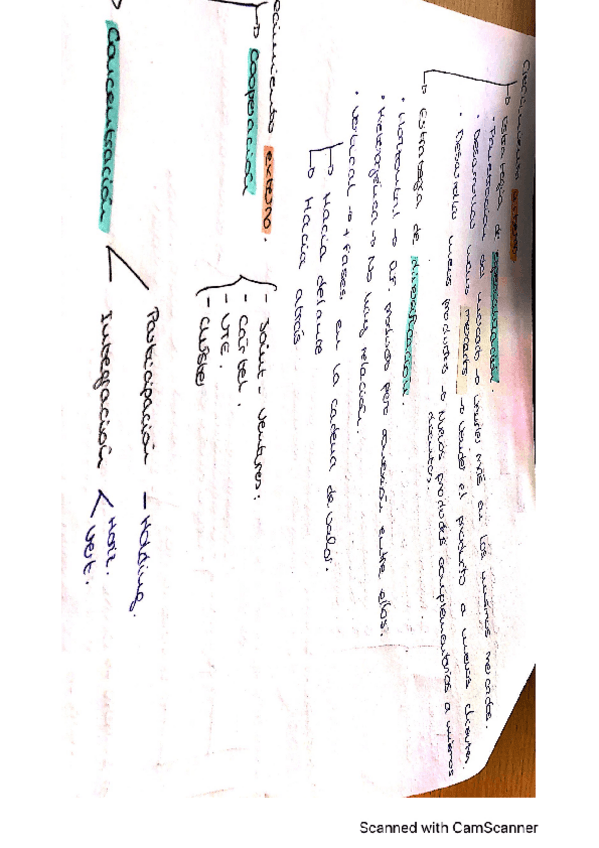 Crecimiento interno
→ Estrategia de especialización.
· Penetración del mercado → vender más en los mismos mercados.
· Desarrollar nuevos mercados → vender el producto a nuevos clientes.
· Desarrollar nuevos productos → Nuevos productos complementarios a
distintos.
→ Estrategia de diversificación.
· Horizontal → dif. producto pero conexión entre ellos.
· Heterogénea → No hay relación.
· Vertical → + fases en la cadena de valor.
→ Hacia delante
→ Hacia atrás
ecimiento externo.
→ Cooperación
- Joint-ventures:
- Cártel.
- UTE.
- Cluster
Concentración
Participación - Holding.
Integración < Horiz.
vert.
Scanned with CamScanner